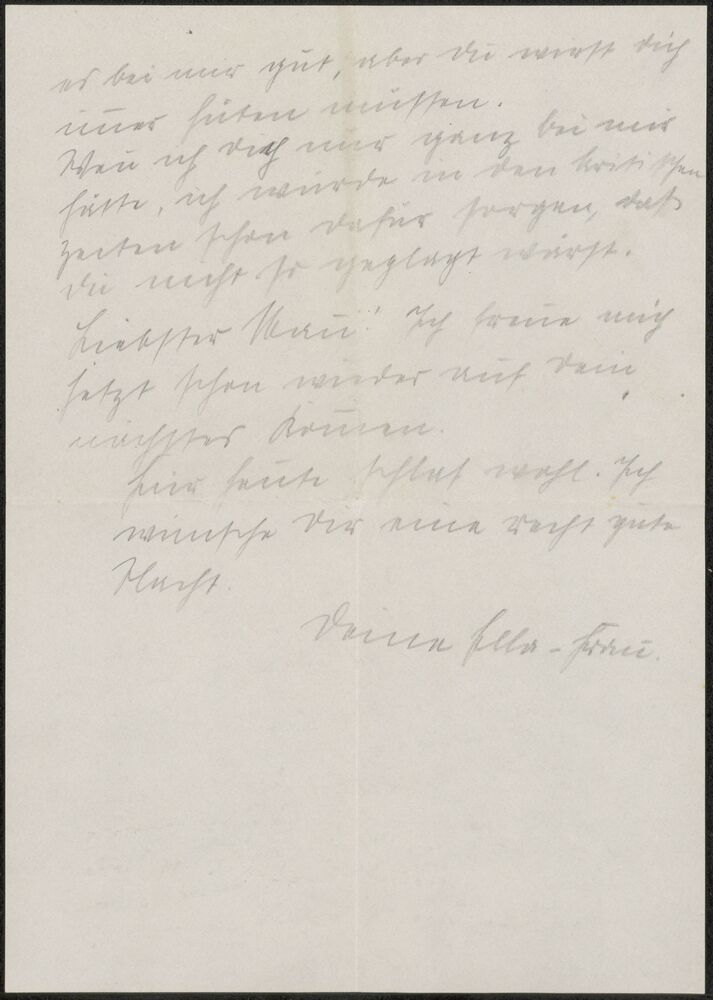 es bei mir gut, aber Du wirst Dich
immer hüten müssen.
Wenn ich Dich nur ganz bei mir
hätte, ich würde in den kritischen
Zeiten schon dafür sorgen, daß
Du nicht so geplagt wärst.
Liebster Mann! Ich freue mich
jetzt schon wieder auf Dein
nächstes Kommen.
Für heute schlaf wohl. Ich
wünsche Dir eine recht gute
Nacht.
Deine Ella-Frau.